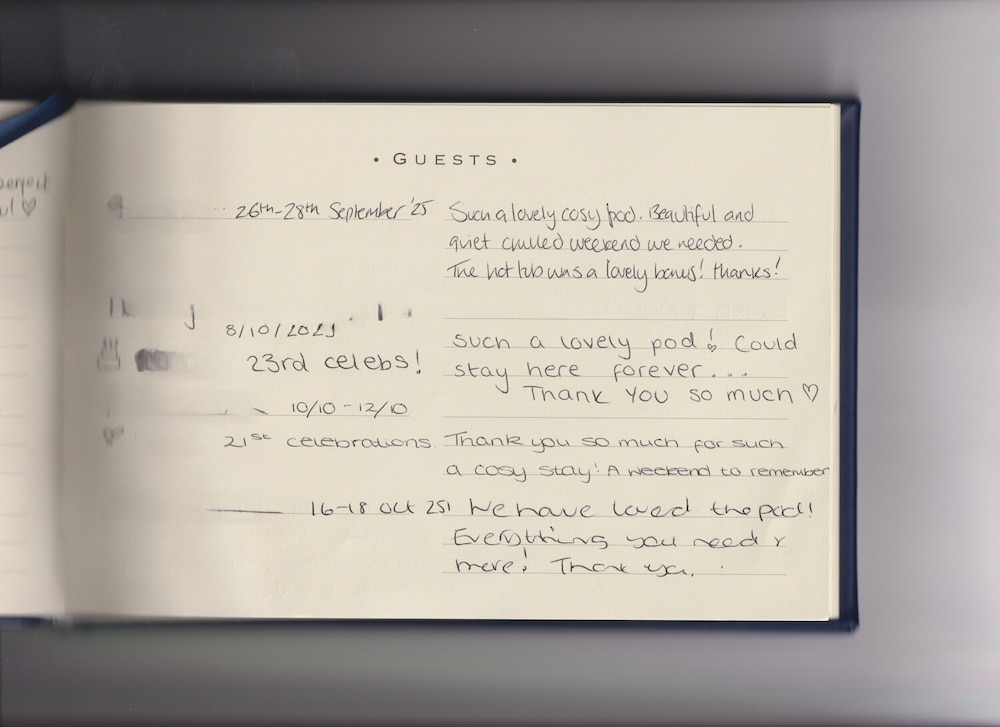 • GUESTS •
perfect
26th-28th September '25 Such a lovely cosy pod. Beautiful and
quiet chilled weekend we needed.
The hot tub was a lovely bonus! thanks!
8/10/2025
23rd celebs! such a lovely pod! Could
stay here forever...
Thank You so much ♡
10/10 - 12/10
21st celebrations Thank you so much for such
a cosy stay! A weekend to remember
16-18 Oct 25! We have loved the pod!
Everything you need &
more! Thank you.